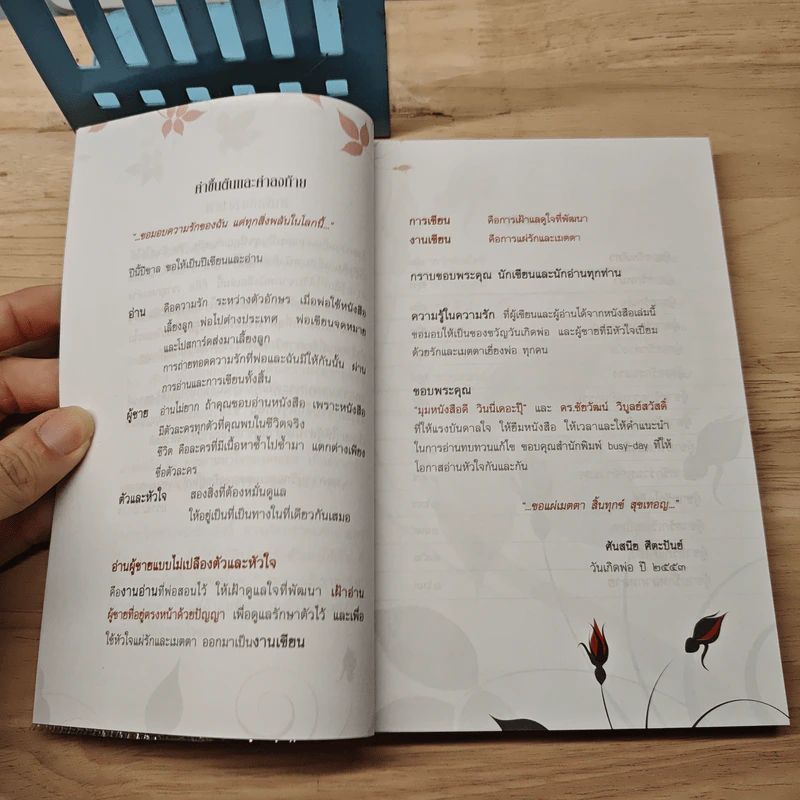 คำขึ้นต้นและคำลงท้าย
"...ขอมอบความรักของฉัน แด่ทุกสิ่งพลันในโลกนี้..."
ปีนี้ปีขาล ขอให้เป็นปีเขียนและอ่าน
อ่าน คือความรัก ระหว่างตัวอักษร เมื่อพ่อใช้หนังสือ
เลี้ยงลูก พ่อไปต่างประเทศ พ่อเขียนจดหมาย
และโปสการ์ดส่งมาเลี้ยงลูก
การถ่ายทอดความรักที่พ่อและฉันมีให้กันนั้น ผ่าน
การอ่านและการเขียนทั้งสิ้น
ผู้ชาย อ่านไม่ยาก ถ้าคุณชอบอ่านหนังสือ เพราะหนังสือ
มีตัวละครทุกตัวที่คุณพบในชีวิตจริง
ชีวิต คือละครที่มีเนื้อหาซ้ำไปซ้ำมา แตกต่างเพียง
ชื่อตัวละคร
ตัวและหัวใจ สองสิ่งที่ต้องหมั่นดูแล
ให้อยู่เป็นที่เป็นทางในที่เดียวกันเสมอ
อ่านผู้ชายแบบไม่เปลืองตัวและหัวใจ
คืองานอ่านที่พ่อสอนไว้ ให้เฝ้าดูแลใจที่พัฒนา เฝ้าอ่าน
ผู้ชายที่อยู่ตรงหน้าด้วยปัญญา เพื่อดูแลรักษาตัวไว้ และเพื่อ
ใช้หัวใจแผ่รักและเมตตา ออกมาเป็นงานเขียน
การเขียน คือการเฝ้าแลดูใจที่พัฒนา
งานเขียน คือการแผ่รักและเมตตา
กราบขอบพระคุณ นักเขียนและนักอ่านทุกท่าน
ความรู้ในความรัก ที่ผู้เขียนและผู้อ่านได้จากหนังสือเล่มนี้
ขอมอบให้เป็นของขวัญวันเกิดพ่อ และผู้ชายที่มีหัวใจเปี่ยม
ด้วยรักและเมตตาเยี่ยงพ่อ ทุกคน
ขอบพระคุณ
"มุมหนังสือดี วินนี่เดอะปุ๊" และ ดร.ชัยวัฒน์ วิบูลย์สวัสดิ์
ที่ให้แรงบันดาลใจ ให้ยืมหนังสือ ให้เวลาและให้คำแนะนำ
ในการอ่านทบทวนแก้ไข ขอบคุณสำนักพิมพ์ busy-day ที่ให้
โอกาสอ่านหัวใจกันและกัน
"...ขอแผ่เมตตา สิ้นทุกข์ สุขเทอญ..."
ศันสนีย ศีตะปันย์
วันเกิดพ่อ ปี ๒๕๕๓